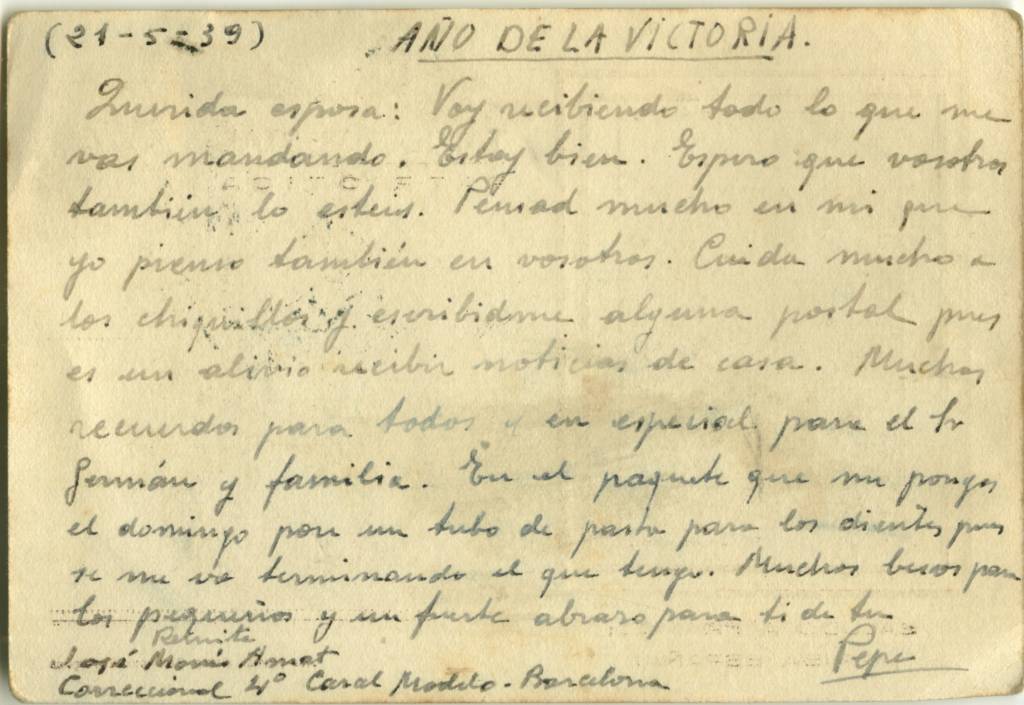 (21-5-39) AÑO DE LA VICTORIA.
Querida esposa: Voy recibiendo todo lo que me
vas mandando. Estoy bien. Espero que vosotros
también lo esteis. Pensad mucho en mi que
yo pienso también en vosotros. Cuida mucho a
los chiquillos y escribidme alguna postal pues
es un alivio recibir noticias de casa. Muchos
recuerdos para todos y en especial para el Sr
Germán y familia. En el paquete que me pongas
el domingo pon un tubo de pasta para los dientes pues
se me va terminando el que tengo. Muchos besos para
los pequeños y un fuerte abrazo para ti de tu
Pepe
Remite
José Amat
Correccional 4º Carcel Modelo. Barcelona